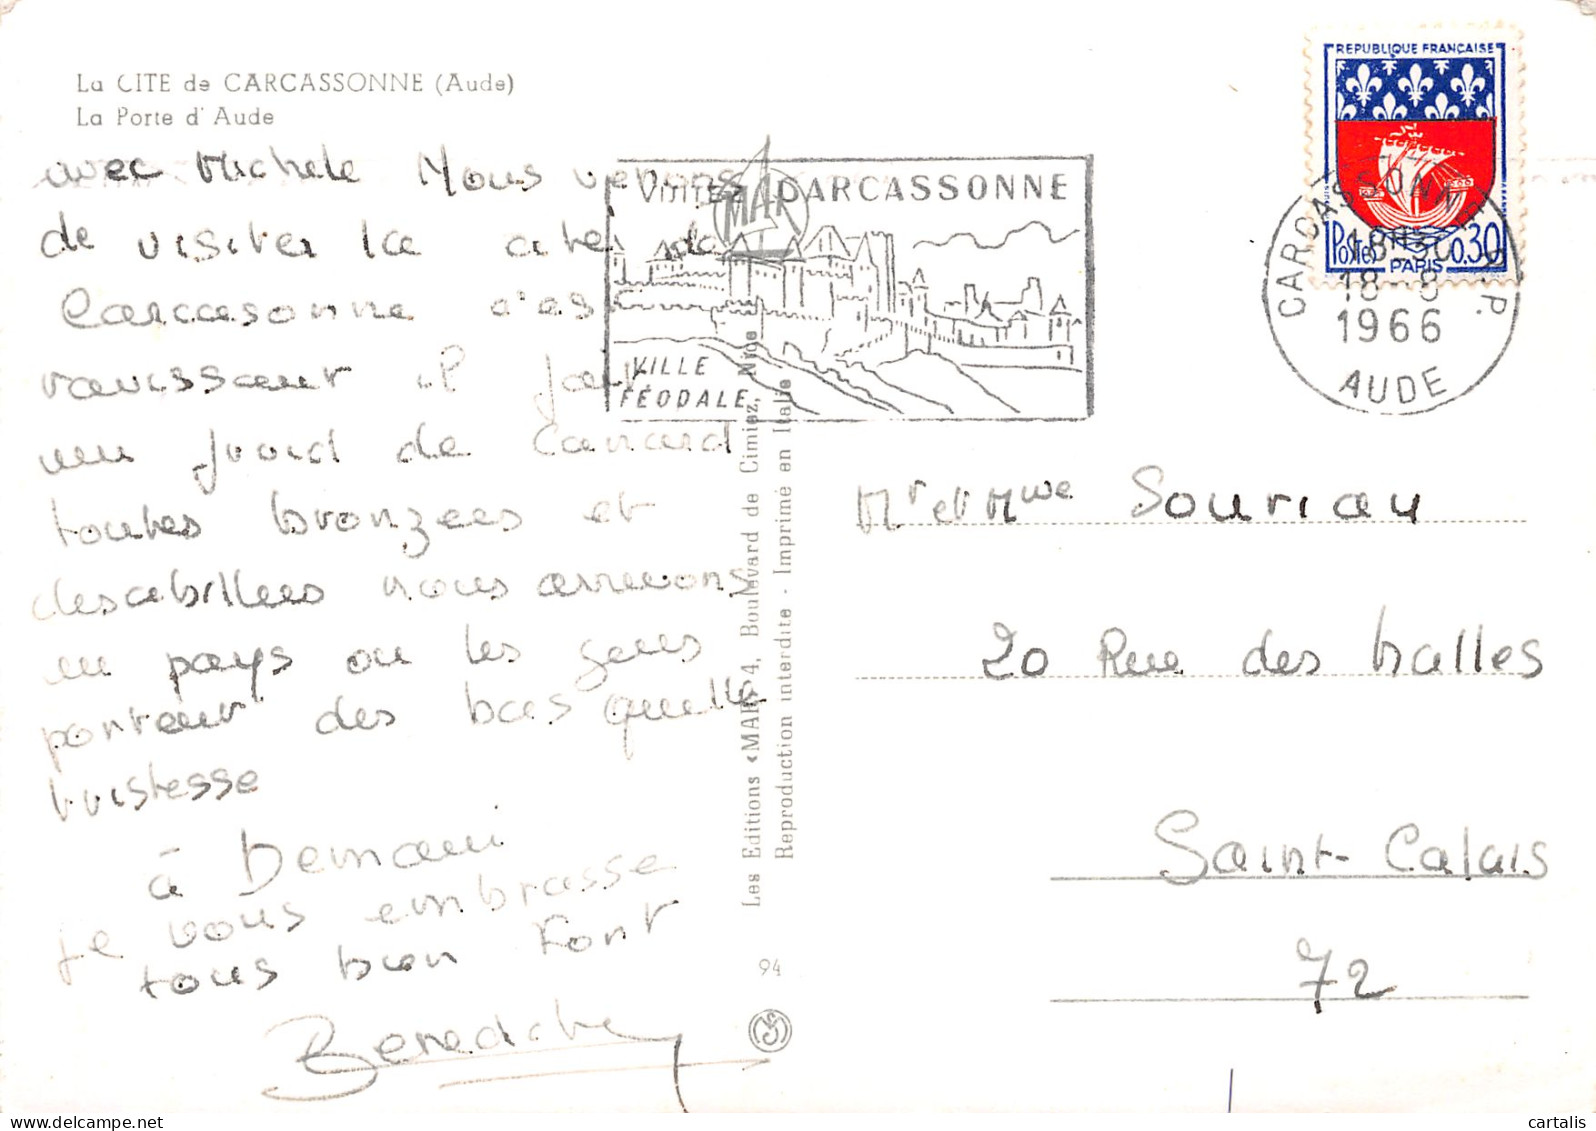 La CITE de CARCASSONNE (Aude)
La Porte d'Aude
avec Michele Nous venons
de visiter la cite de
Carcasonne c'est
ravissant il fait
un froid de Canard
toutes bronzees et
descabillees nous arrivons
en pays ou les gens
portent des bas quelle
tristesse
à Demain
Je vous embrasse
tous bien Fort
Benedicte
VISITEZ CARCASSONNE
VILLE
FÉODALE
MAR
Les Editions «MAR» 4, Boulevard de Cimiez, Nice
Reproduction interdite - Imprimé en Italie
94
REPUBLIQUE FRANÇAISE
POSTES
0,30
PARIS
CARCASSONNE R.P.
18H30
18-8
1966
AUDE
Mr et Mme Souriau
20 Rue des halles
Saint-Calais
72
cartalis
cartalis.delcampe.net